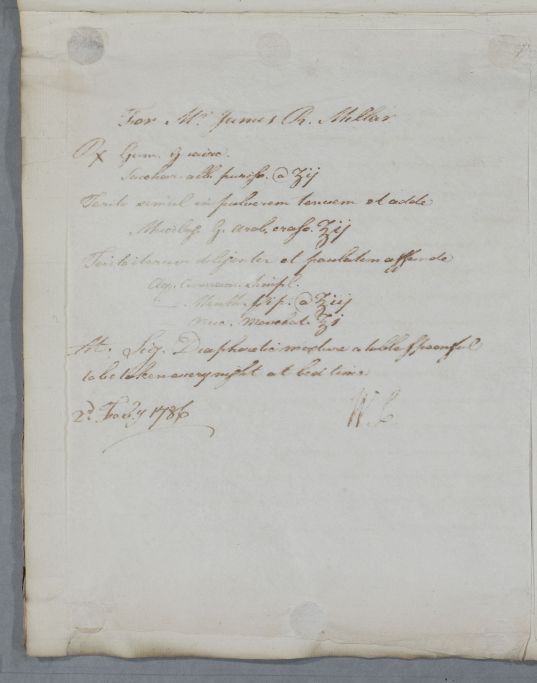 For Mr. James R. Millar
Rx Gum. Guaiac.
Sacchar. alb. puriss. @ ʒij
Terito simul in pulverem tenuem et adde
Mucilag. G. Arab. crass. ʒij
Terito iterum diligenter et paulatim affunde
Aq. Cinnam. Simpl.
— Menth. pip. @ ℥iij
Nuc. Moschat. ℥j
Sig. Diaphoretic mixture a table spoonful
to be taken every night at bed time
2d. Feb.y 1786
W. C.